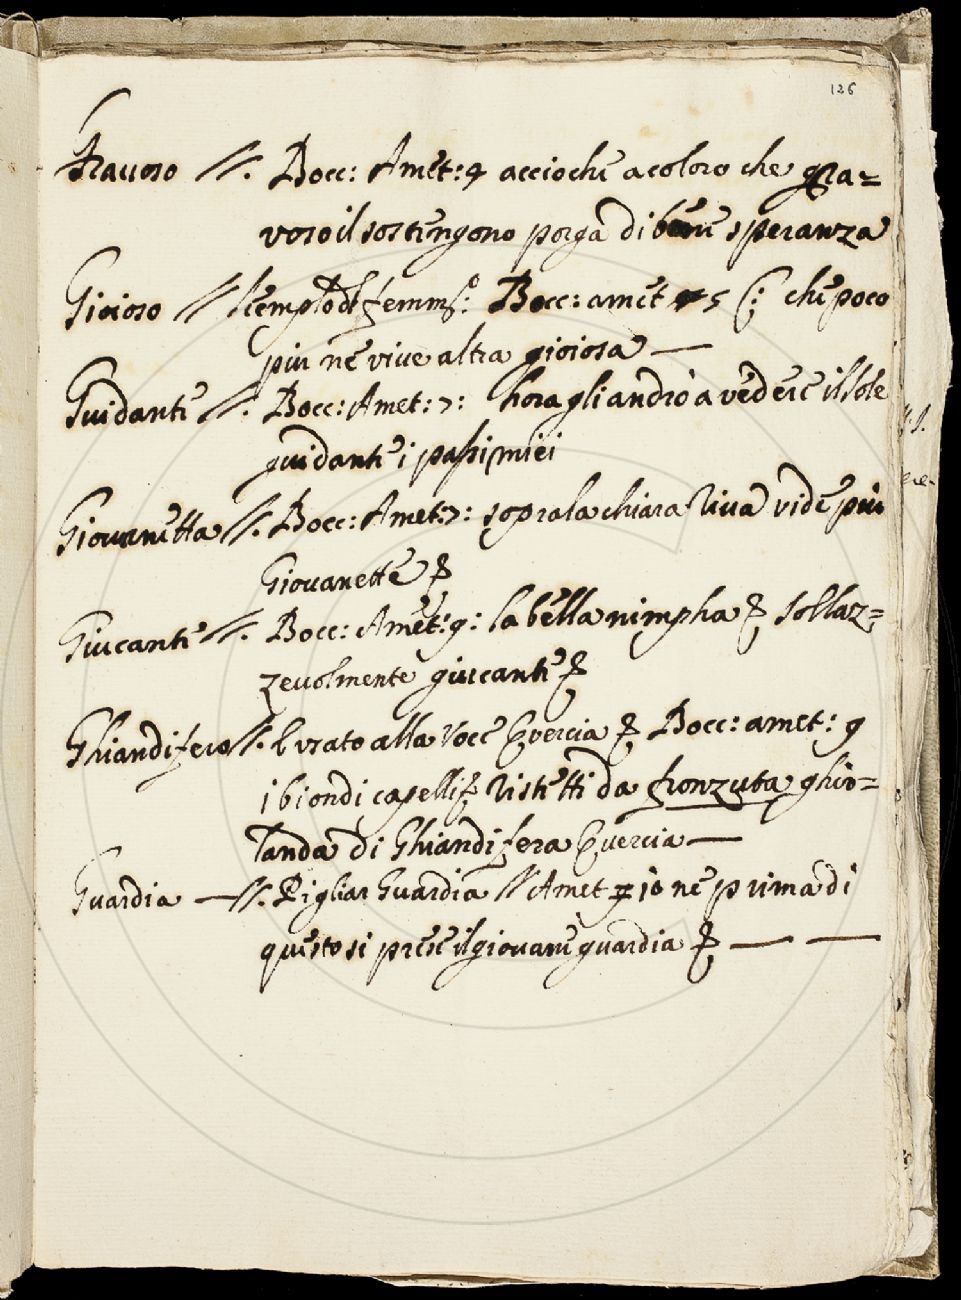 126
Grauoso //. Bocc: Amet: 4 acciochè a coloro che gra=
voso il sostengono porga di bene speranza
Gioioso // Bocc: amet 5 che poco
piu ne vive altra gioiosa —
Guidante //. Bocc: Amet: 7: hora gli andrò a vedere il sole
guidante i passi miei
Giovanetta //. Bocc: Amet: 7: sopra la chiara riva vide più
Giovanette &
Giucante //. Bocc: Amet: 9: la bella nimpha & sollaz=
zevolmente giucante &
Ghiandifero //. è usato alla voce Quercia & Bocc: amet: 9
i biondi capelli & ristretti da fronzuta ghir=
landa di Ghiandifera Quercia —
Guardia — //. Pigliar Guardia // Amet 10 ne prima di
questo si prese il giovane guardia & — —